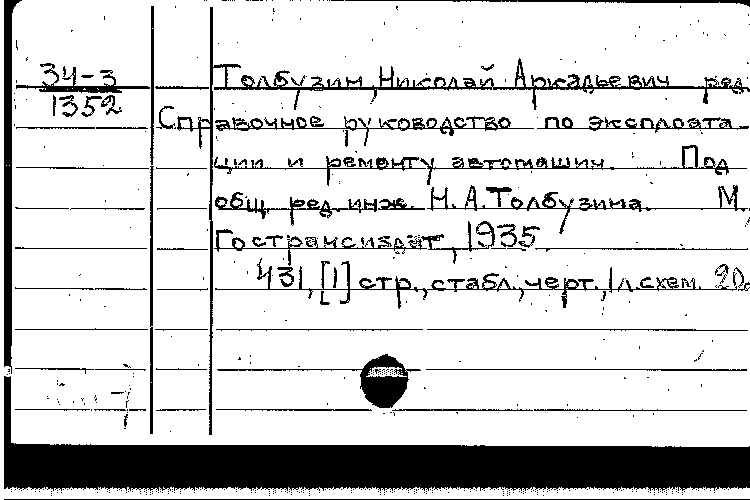 34-3
1352
Толбузин, Николай Аркадьевич ред.
Справочное руководство по эксплоата-
ции и ремонту автомашин. Под
общ. ред. инж. Н. А. Толбузина. М.
Гострансиздат, 1935.
431, [1] стр., с табл., черт., 1 л. схем.